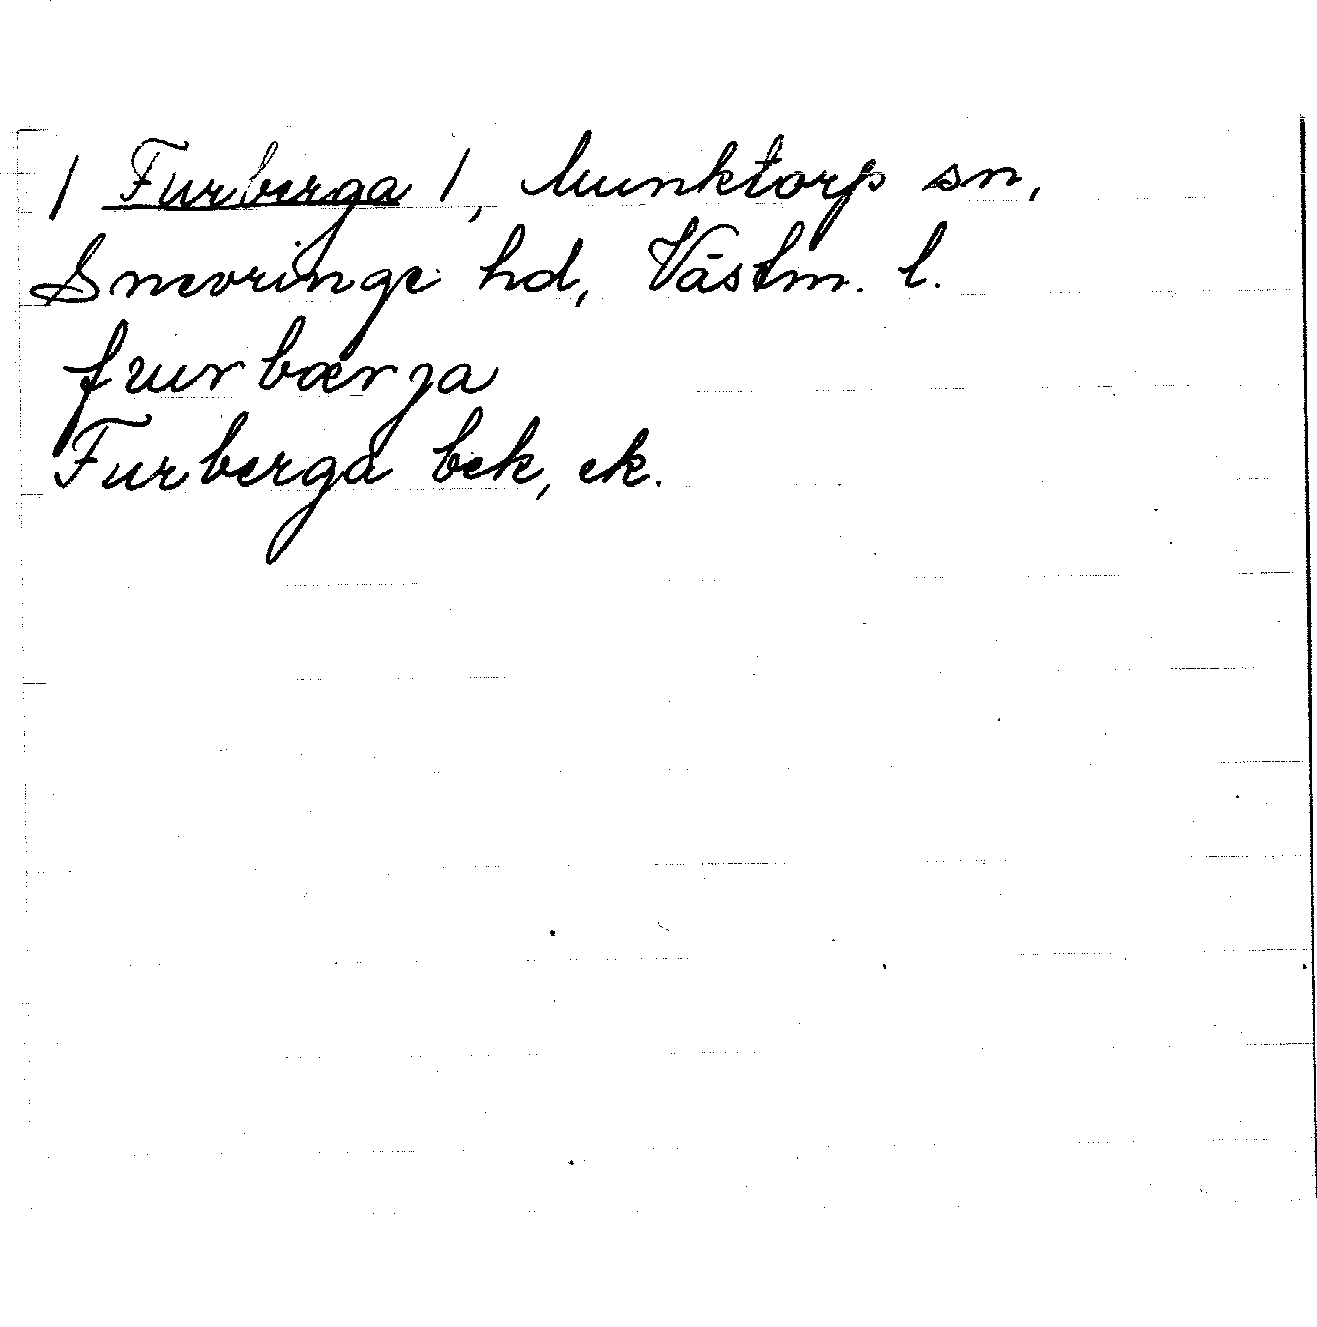 / Furberga /, Munktorp sn,
Snevringe hd, Västm. l.
fuurbærja
Furberga bek, ek.